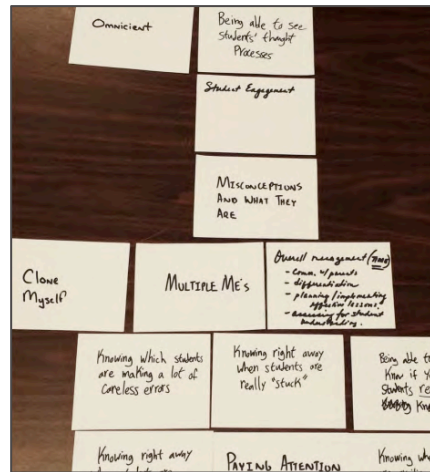 Omnicient
Being able to see
students' thought
Processes
Student Engagement
MISCONCEPTIONS
AND WHAT THEY
ARE
Clone
Myself
MULTIPLE ME'S
Overall management (TIME)
- comm. w/ parents
- differentiation
- planning/implementing
effective lessons
- assessing for student
understanding.
Knowing which students
are making a lot of
careless errors
Knowing right away
when students are
really "stuck"
Being able to
Know if
students
Knowing right away
PAYING ATTENTION
Knowing